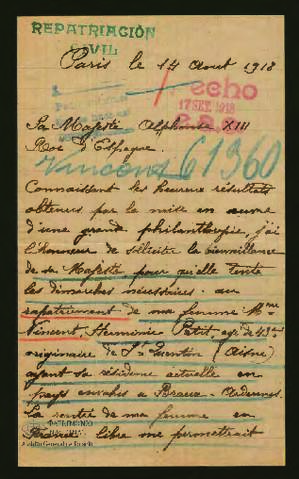 REPATRIACIÓN
CIVIL
Paris le 14 Aout 1918
echo
17 SET. 1918
Sa Majesté Alphonse XIII
Roi d'Espagne
Vincent 61360
Connaissant les heureux résultats
obtenus par la mise en œuvre
d'une grande philanthropie, j'ai
l'honneur de solliciter la bienveillance
de sa Majesté pour qu'elle tente
les démarches nécessaires au
rapatriement de ma femme Mme
Vincent, Herminie Petit agée de 43 ans
originaire de St Quentin (Aisne)
ayant sa résidence actuelle en
pays envahis à Beaux - Ardennes.
La rentrée de ma femme en
France libre me permettrait
PATRIMONIO
NACIONAL